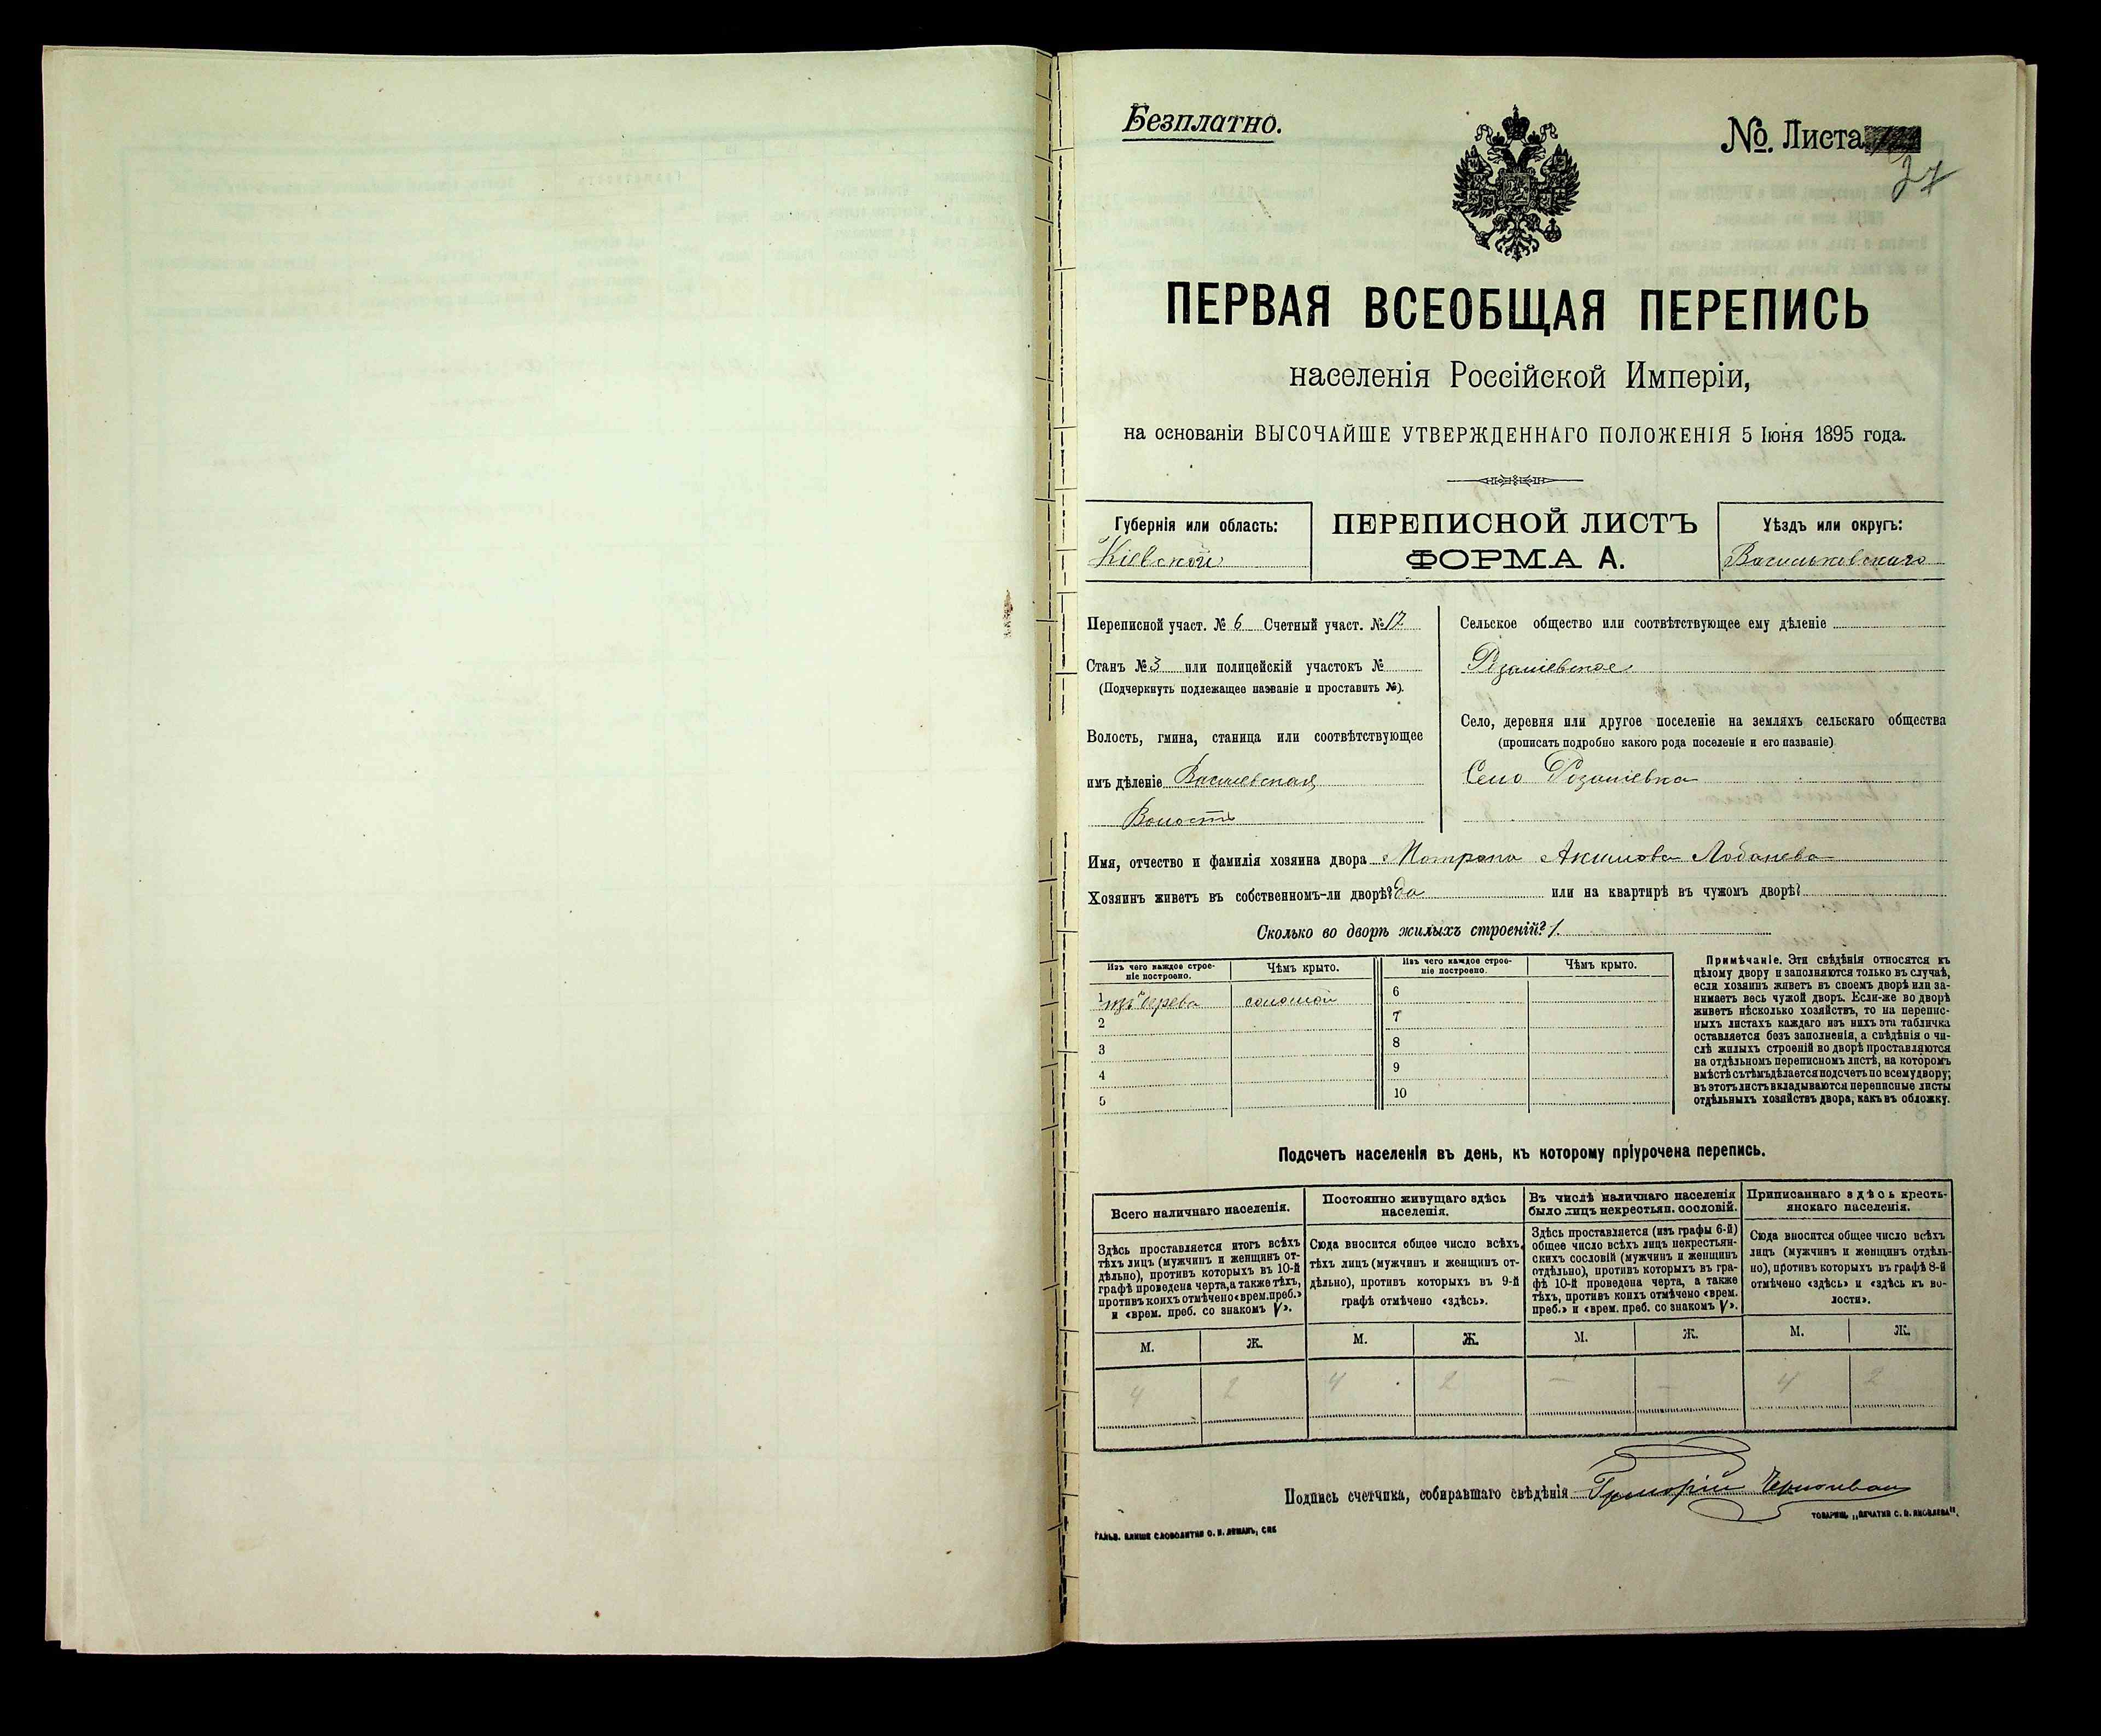 Безплатно.
№. Листа
27
ПЕРВАЯ ВСЕОБЩАЯ ПЕРЕПИСЬ
населенія Россійской Имперіи,
на основаніи ВЫСОЧАЙШЕ УТВЕРЖДЕННАГО ПОЛОЖЕНІЯ 5 Іюня 1895 года.
Губернія или область:
Кіевской
ПЕРЕПИСНОЙ ЛИСТЪ
ФОРМА А.
Уѣздъ или округъ:
Васильковскаго
Переписной участ. № 6 Счетный участ. № 17
Станъ № 3 или полицейскій участокъ №
(Подчеркнуть подлежащее названіе и проставить №).
Волость, гмина, станица или соотвѣтствующее
имъ дѣленіе
Волость
Сельское общество или соотвѣтствующее ему дѣленіе
Розаліевское
Село, деревня или другое поселеніе на земляхъ сельскаго общества
(прописать подробно какого рода поселеніе и его названіе)
Село Розаліевка
Имя, отчество и фамилія хозяина двора Мотрона Акимова
Хозяинъ живетъ въ собственномъ-ли дворѣ? да или на квартирѣ въ чужомъ дворѣ?
Сколько во дворѣ жилыхъ строеній? 1.
Изъ чего каждое строе-
ніе построено.
Чѣмъ крыто.
Изъ чего каждое строе-
ніе построено.
Чѣмъ крыто.
1 соломой
2
3
4
5
6
7
8
9
10
Примѣчаніе. Эти свѣдѣнія относятся къ
цѣлому двору и заполняются только въ случаѣ,
если хозяинъ живетъ въ своемъ дворѣ или за-
нимаетъ весь чужой дворъ. Если-же во дворѣ
живетъ нѣсколько хозяйствъ, то на перепис-
ныхъ листахъ каждаго изъ нихъ эта табличка
оставляется безъ заполненія, а свѣдѣнія о чи-
слѣ жилыхъ строеній во дворѣ проставляются
на отдѣльномъ переписномъ листѣ, на которомъ
вмѣстѣ съ тѣмъ дѣлается подсчетъ по всему двору;
въ этотъ листъ вкладываются переписные листы
отдѣльныхъ хозяйствъ двора, какъ въ обложку.
Подсчетъ населенія въ день, къ которому пріурочена перепись.
Всего наличнаго населенія.
Здѣсь проставляется итогъ всѣхъ
тѣхъ лицъ (мужчинъ и женщинъ от-
дѣльно), противъ которыхъ въ 10-й
графѣ проведена черта, а также тѣхъ,
противъ коихъ отмѣчено «врем. преб.»
и «врем. преб. со знакомъ V».
Постоянно живущаго здѣсь
населенія.
Сюда вносится общее число всѣхъ
тѣхъ лицъ (мужчинъ и женщинъ от-
дѣльно), противъ которыхъ въ 9-й
графѣ отмѣчено «здѣсь».
Въ числѣ наличнаго населенія
было лицъ некрестьян. сословій.
Здѣсь проставляется (изъ графы 6-й)
общее число всѣхъ лицъ некрестьян-
скихъ сословій (мужчинъ и женщинъ
отдѣльно), противъ которыхъ въ гра-
фѣ 10-й проведена черта, а также
тѣхъ, противъ коихъ отмѣчено «врем.
преб.» и «врем. преб. со знакомъ V».
Приписаннаго здѣсь кресть-
янскаго населенія.
Сюда вносится общее число всѣхъ
лицъ (мужчинъ и женщинъ отдѣль-
но), противъ которыхъ въ графѣ 8-й
отмѣчено «здѣсь» и «здѣсь къ во-
лости».
М. Ж. М. Ж. М. Ж. М. Ж.
4 2 4 2 — — 4 2
Подпись счетчика, собиравшаго свѣдѣнія Григорій
ГАЛЬВ. КЛИШЕ СЛОВОЛИТНИ О. И. ЛЕМАНЪ, СПБ
ТОВАРИЩ. „ПЕЧАТНЯ С. П. ЯКОВЛЕВА".